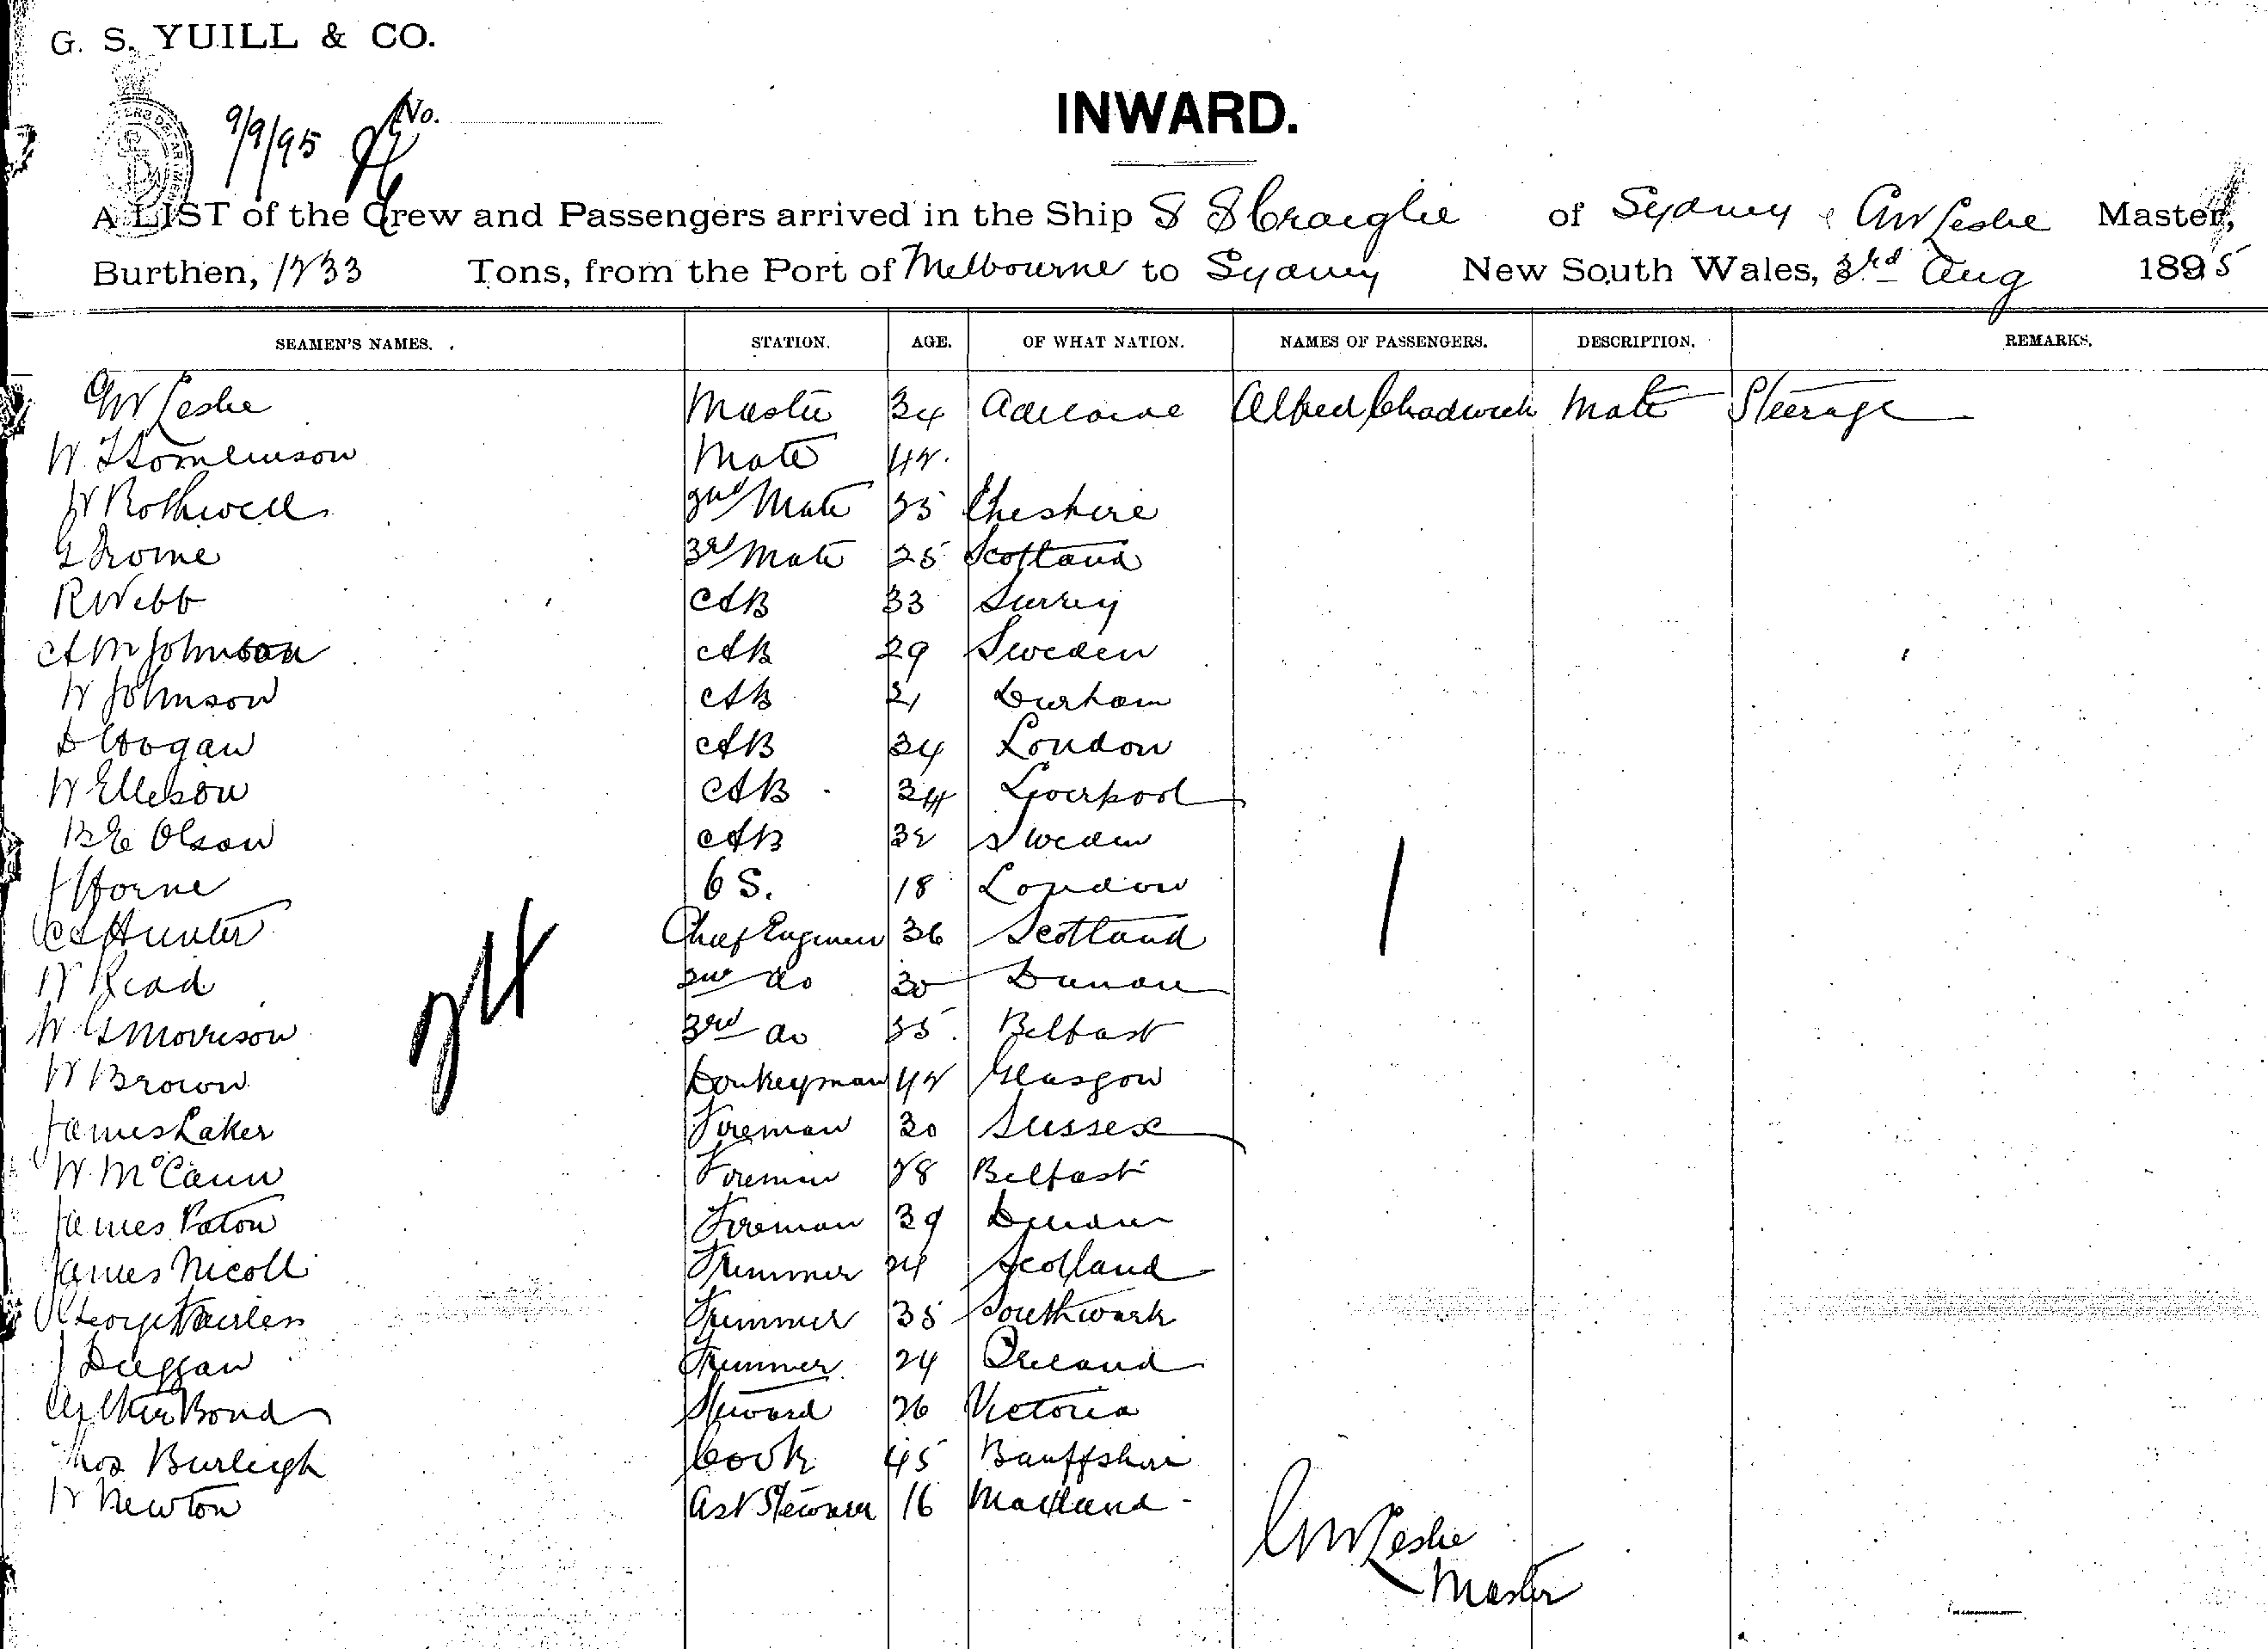 G. S. YUILL & CO.
9/9/95 No.
INWARD.
A LIST of the Crew and Passengers arrived in the Ship S S Craiglie of Sydney, GW Leslie Master,
Burthen, 1233 Tons, from the Port of Melbourne to Sydney New South Wales, 3rd Aug 1895
SEAMEN'S NAMES. STATION. AGE. OF WHAT NATION. NAMES OF PASSENGERS. DESCRIPTION. REMARKS.
GW Leslie Master 34 Adelaide Alfred Chadwick Mate Steerage
W. Tomlinson Mate 42.
W Rothwell 2nd Mate 35 Cheshire
G Frome 3rd Mate 25 Scotland
R Webb AB 33 Surrey
A M Johnson AB 29 Sweden
W Johnson AB 21 Durham
D Hogan AB 34 London
W Ellison AB 24 Liverpool
B E Olson AB 32 Sweden
J Horne OS. 18 London
Hunter Chief Engineer 36 Scotland
W Read 2nd do 30 Dundee
W G Morrison 3rd do 35 Belfast
W Brown Donkeyman 42 Glasgow
James Laker Fireman 30 Sussex
W. McCann Fireman 28 Belfast
James Paton Fireman 39 Dundee
James Nicoll Trimmer 24 Scotland
George Fairless Trimmer 35 Southwark
J Duggan Trimmer 24 Ireland
Arthur Bond Steward 26 Victoria
Thos Burleigh Cook 45 Banffshire
W Newton Ast Steward 16 Maitland
24
1
GW Leslie
Master